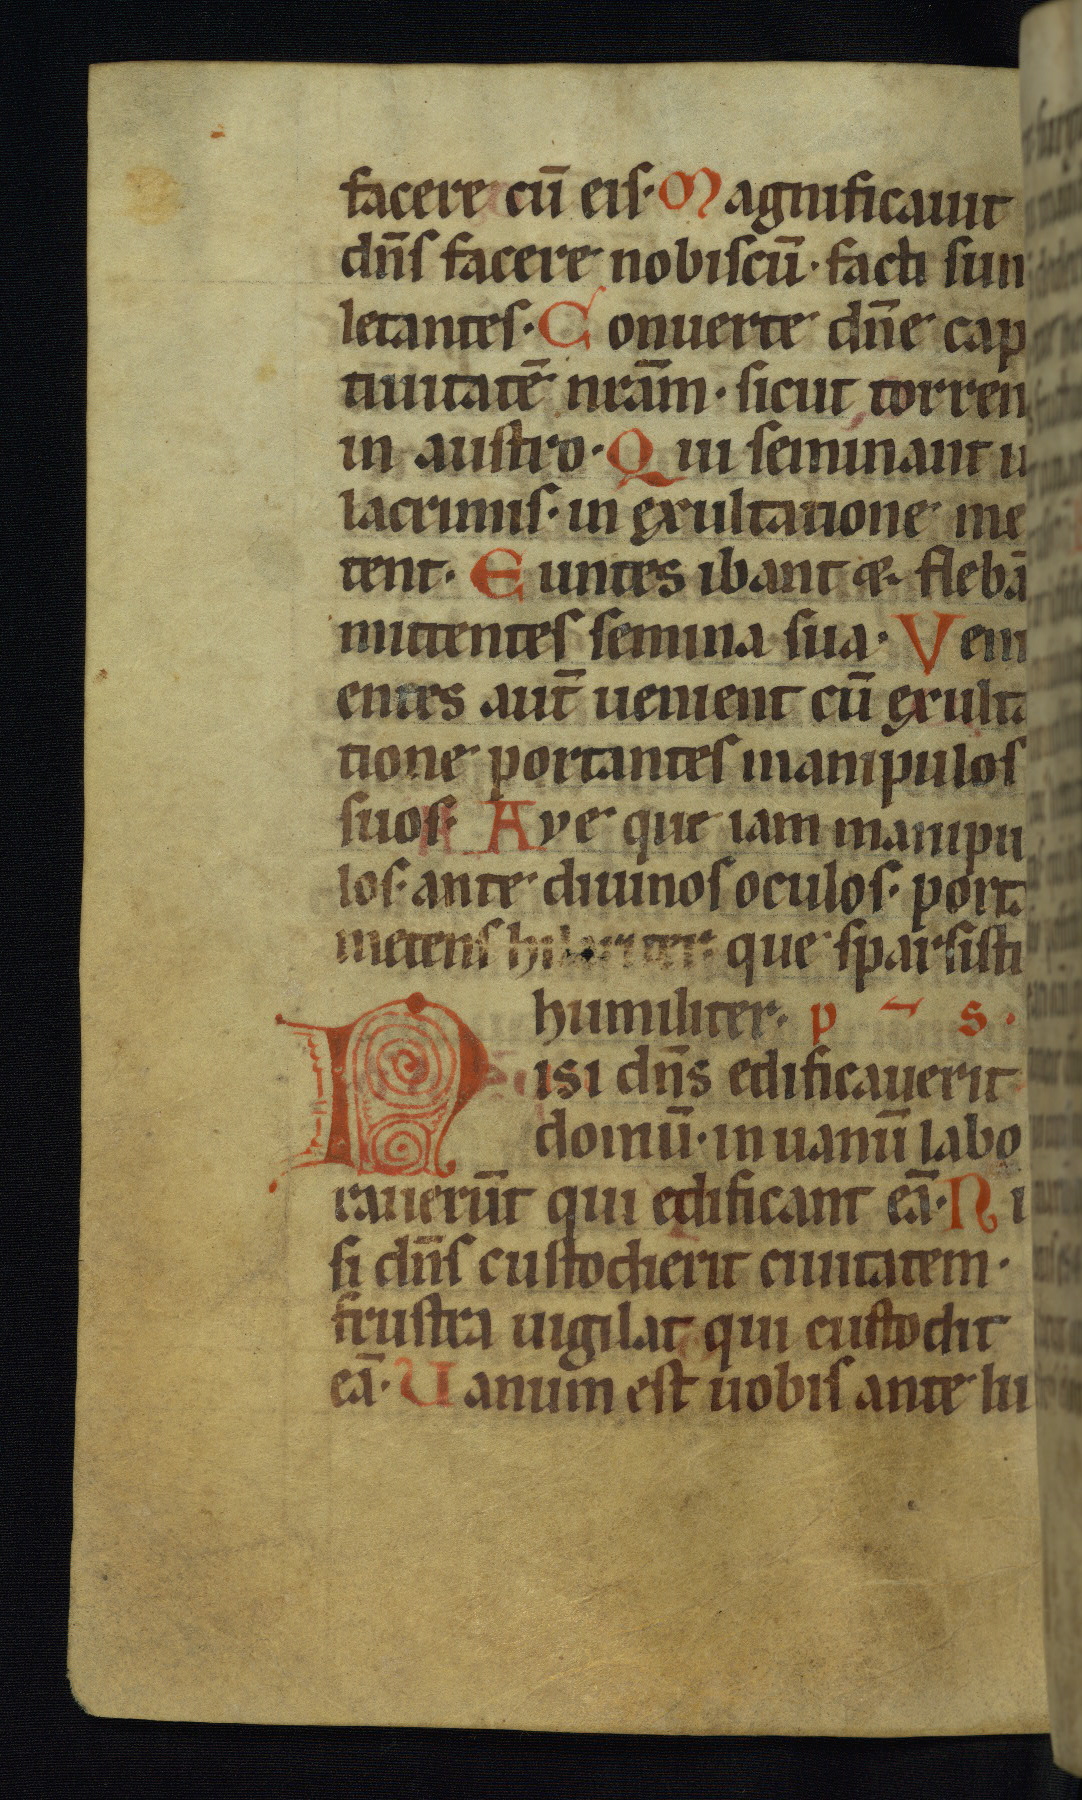 facere cū eis· Magnificauit
dn̄s facere nobiscū· facti sun
letantes· Conuerte dn̄e cap
tiuitatē nrām· sicut torren
in austro· Qui seminant i
lacrimis· in exultatione me
tent· Euntes ibant & flebā
mittentes semina sua· Veni
entes aut̄ uenient cū exulta
tione portantes manipulos
suos· Aye que iam manipu
los· ante diuinos oculos· porta
metens hilariter que sparsisti
humiliter· p s·
Nisi dn̄s edificauerit
domū· in uanū labo
rauerūt qui edificant eā· Ni
si dn̄s custodierit ciuitatem·
frustra uigilat qui custodit
eā· Uanum est uobis ante lu